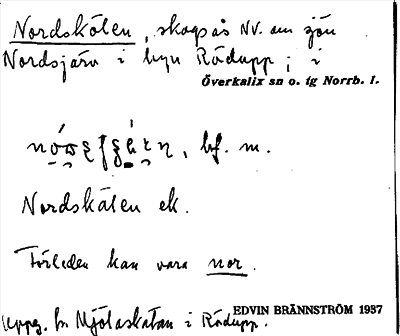 Nordskölen, skogsås NV. om sjön
Nordsjärv i byn Rödupp; i
Överkalix sn o. tg Norrb. l.
bf. m.
Nordskölen ek.
Förleden kan vara nor.
EDVIN BRÄNNSTRÖM 1937
Uppg. fr Mjölaskatan i Rödupp.